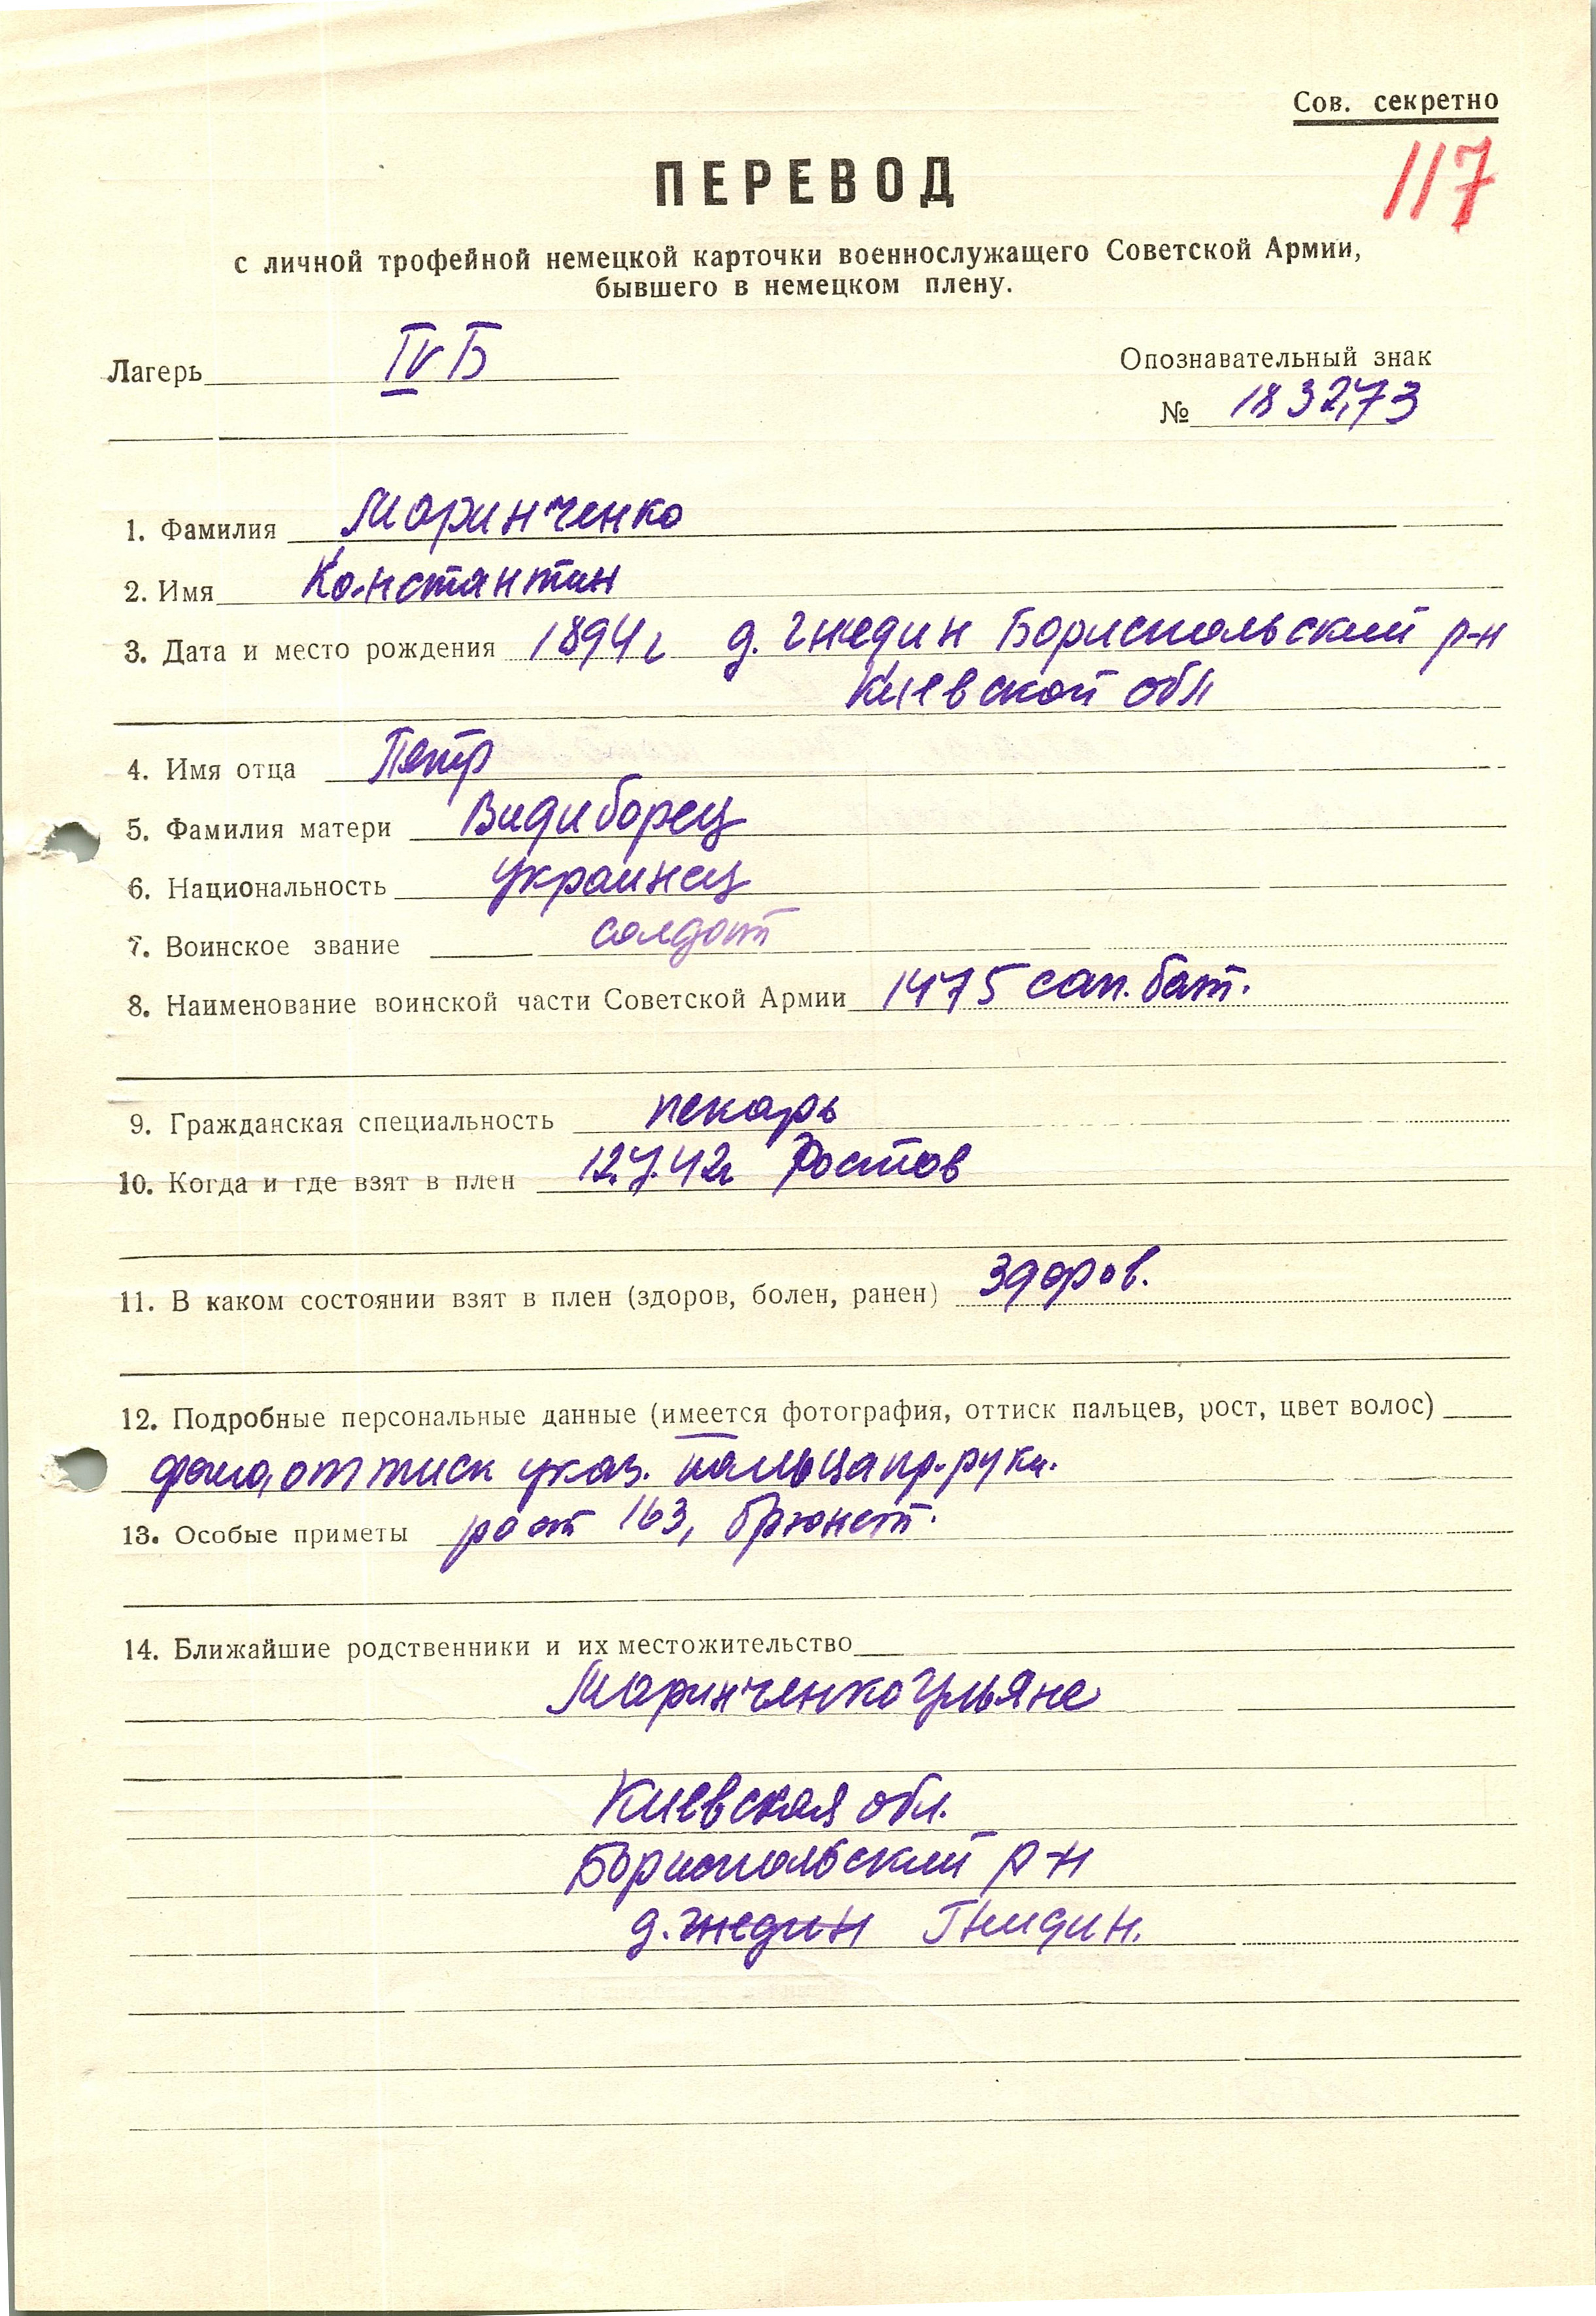 Сов. секретно
117
ПЕРЕВОД
с личной трофейной немецкой карточки военнослужащего Советской Армии,
бывшего в немецком плену.
Лагерь IV Б
Опознавательный знак
№ 183273
1. Фамилия Маринченко
2. Имя Константин
3. Дата и место рождения 1894 г д. Гнедин Бориспольский р-н
Киевской обл
4. Имя отца Петр
5. Фамилия матери Видиборец
6. Национальность украинец
7. Воинское звание солдат
8. Наименование воинской части Советской Армии 1475 сап. бат.
9. Гражданская специальность пекарь
10. Когда и где взят в плен 12.7.42г Ростов
11. В каком состоянии взят в плен (здоров, болен, ранен) здоров.
12. Подробные персональные данные (имеется фотография, оттиск пальцев, рост, цвет волос)
фото, оттиск указ. пальца пр. руки.
13. Особые приметы рост 163, брюнет.
14. Ближайшие родственники и их местожительство
Маринченко Ульяне
Киевская обл.
Бориспольский р-н
д. Гнедин Гнидин.